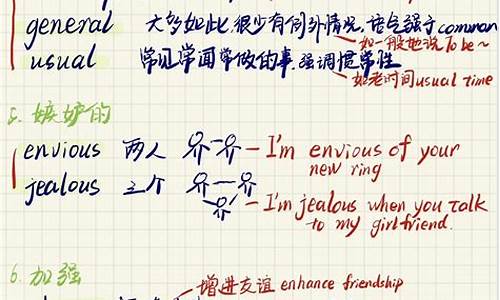 general 大多如此,很少有例外情况,语气强于common
如一般地说To be~
usual 常见常闻常做的事,强调惯常性
如老时间usual time
5. 嫉妒的
envious 两人 I'm envious of your
new ring
jealous 三个
I'm jealous when you talk
to my girlfriend.
6. 加强
增进友谊 enhance friendship